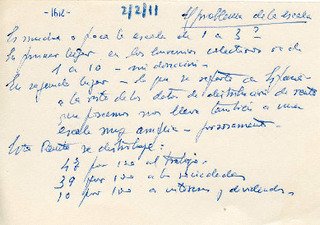 -1612-
2/2/11
El problema de la escala
Es mucho o poco la escala de 1 a 3?
En primer lugar en los convenios colectivos va de
1 a 10 - mi dirección -
En segundo lugar - lo que se reparte en España
a la vista de los datos de distribución de renta
que poseemos nos lleva también a una
escala muy amplia - forzosamente.
Esta Renta se distribuye:
47 por 100 al trabajo.
39 por 100 a las sociedades
10 por 100 a intereses y dividendos.